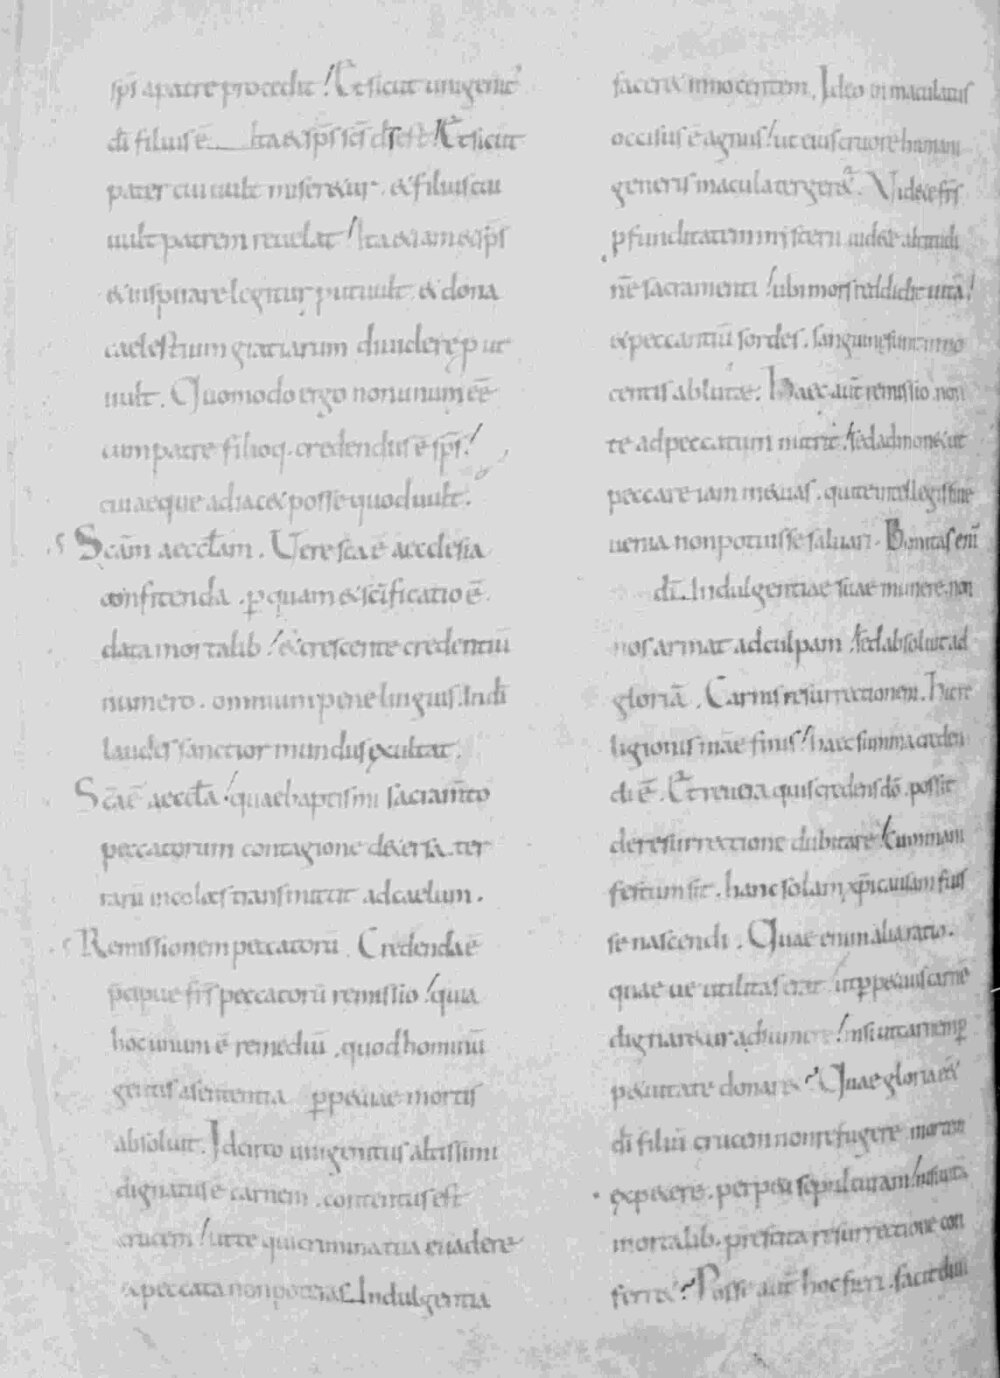 sp̄s a patre procedit! Et sicut unigenit'
dī filius ē ita & sp̄s sc̄s dī est. Et sicut
pater cui uult miser&ur. & filius cui
uult patrem reuelat! Ita & iam & sp̄s
& inspirare legitur put uult. & dona
caelestium gratiarum diuidere ꝓ ut
uult. Quomodo ergo non unum eē
cum patre filioq. credendus ē sp̄s!
cui aeque adiac& posse quod uult.
Scām aecclam. Uere sca ē aecclesia
confitenda. ꝑ quam & sc̄ificatio ē
data mortalib! & crescente credentiū
numero. omnium pene linguis. In dī
laudes sanctior mundus exultat.
Scāe aeccla! quae baptismi sacram̄to
peccatorum contagione det&ersa. ter
rarū incolas transmittit ad caelum.
Remissionem peccatorū. Credenda ē
p̄cipue fr̄s peccatorū remissio! quia
hoc unum ē remediū. quod hominū
genus a sententia ꝑp&uae mortis
absoluit. Idcirco unigenitus altissimi
dignatus ē carnem. contentus est
crucem! ut te qui crimina tua euadere
& peccata non poteras. Indulgentia
facer& innocentem. Ideo inmaculatus
occisus ē agnus! ut eius cruore humani
generis macula terger&ur. Uid&e fr̄s
ꝓfunditatem misterii uid&e altitudi
nē sacramenti! ubi mors reddidit uitā!
& peccantiū sordes. sanguine sunt inno
centis ablutae. Haec aut̄ remissio. non
te ad peccatum nutrit! sed admon& ut
peccare iam m&uas. qui te intellegis sine
uenia non potuisse saluari. Bonitas enī
dī. Indulgentiae suae munere. non
nos armat ad culpam! sed absoluit ad
gloriā. Carnis resurrectionem. Hic re
ligionis n̄rae finis! haec summa creden
di ē. Et reuera quis credens dō. possit
de resurrectione dubitare! Cum mani
festum sit. hanc solam xp̄i causam fuis
se nascendi. Quae enim alia ratio.
quae ue utilitas erat! ut ꝑp&uus carnē
dignar&ur adsumere! nisi ut carni ꝑ
p&uitate donar&? Quae gloria ēē&
dī filiū crucem non refugere. mortem
exp&ere. perp&i sepulturam! nisi uitā
mortalib. prestita resurrectione con
ferr&? Posse aut̄ hoc fieri. facit diui